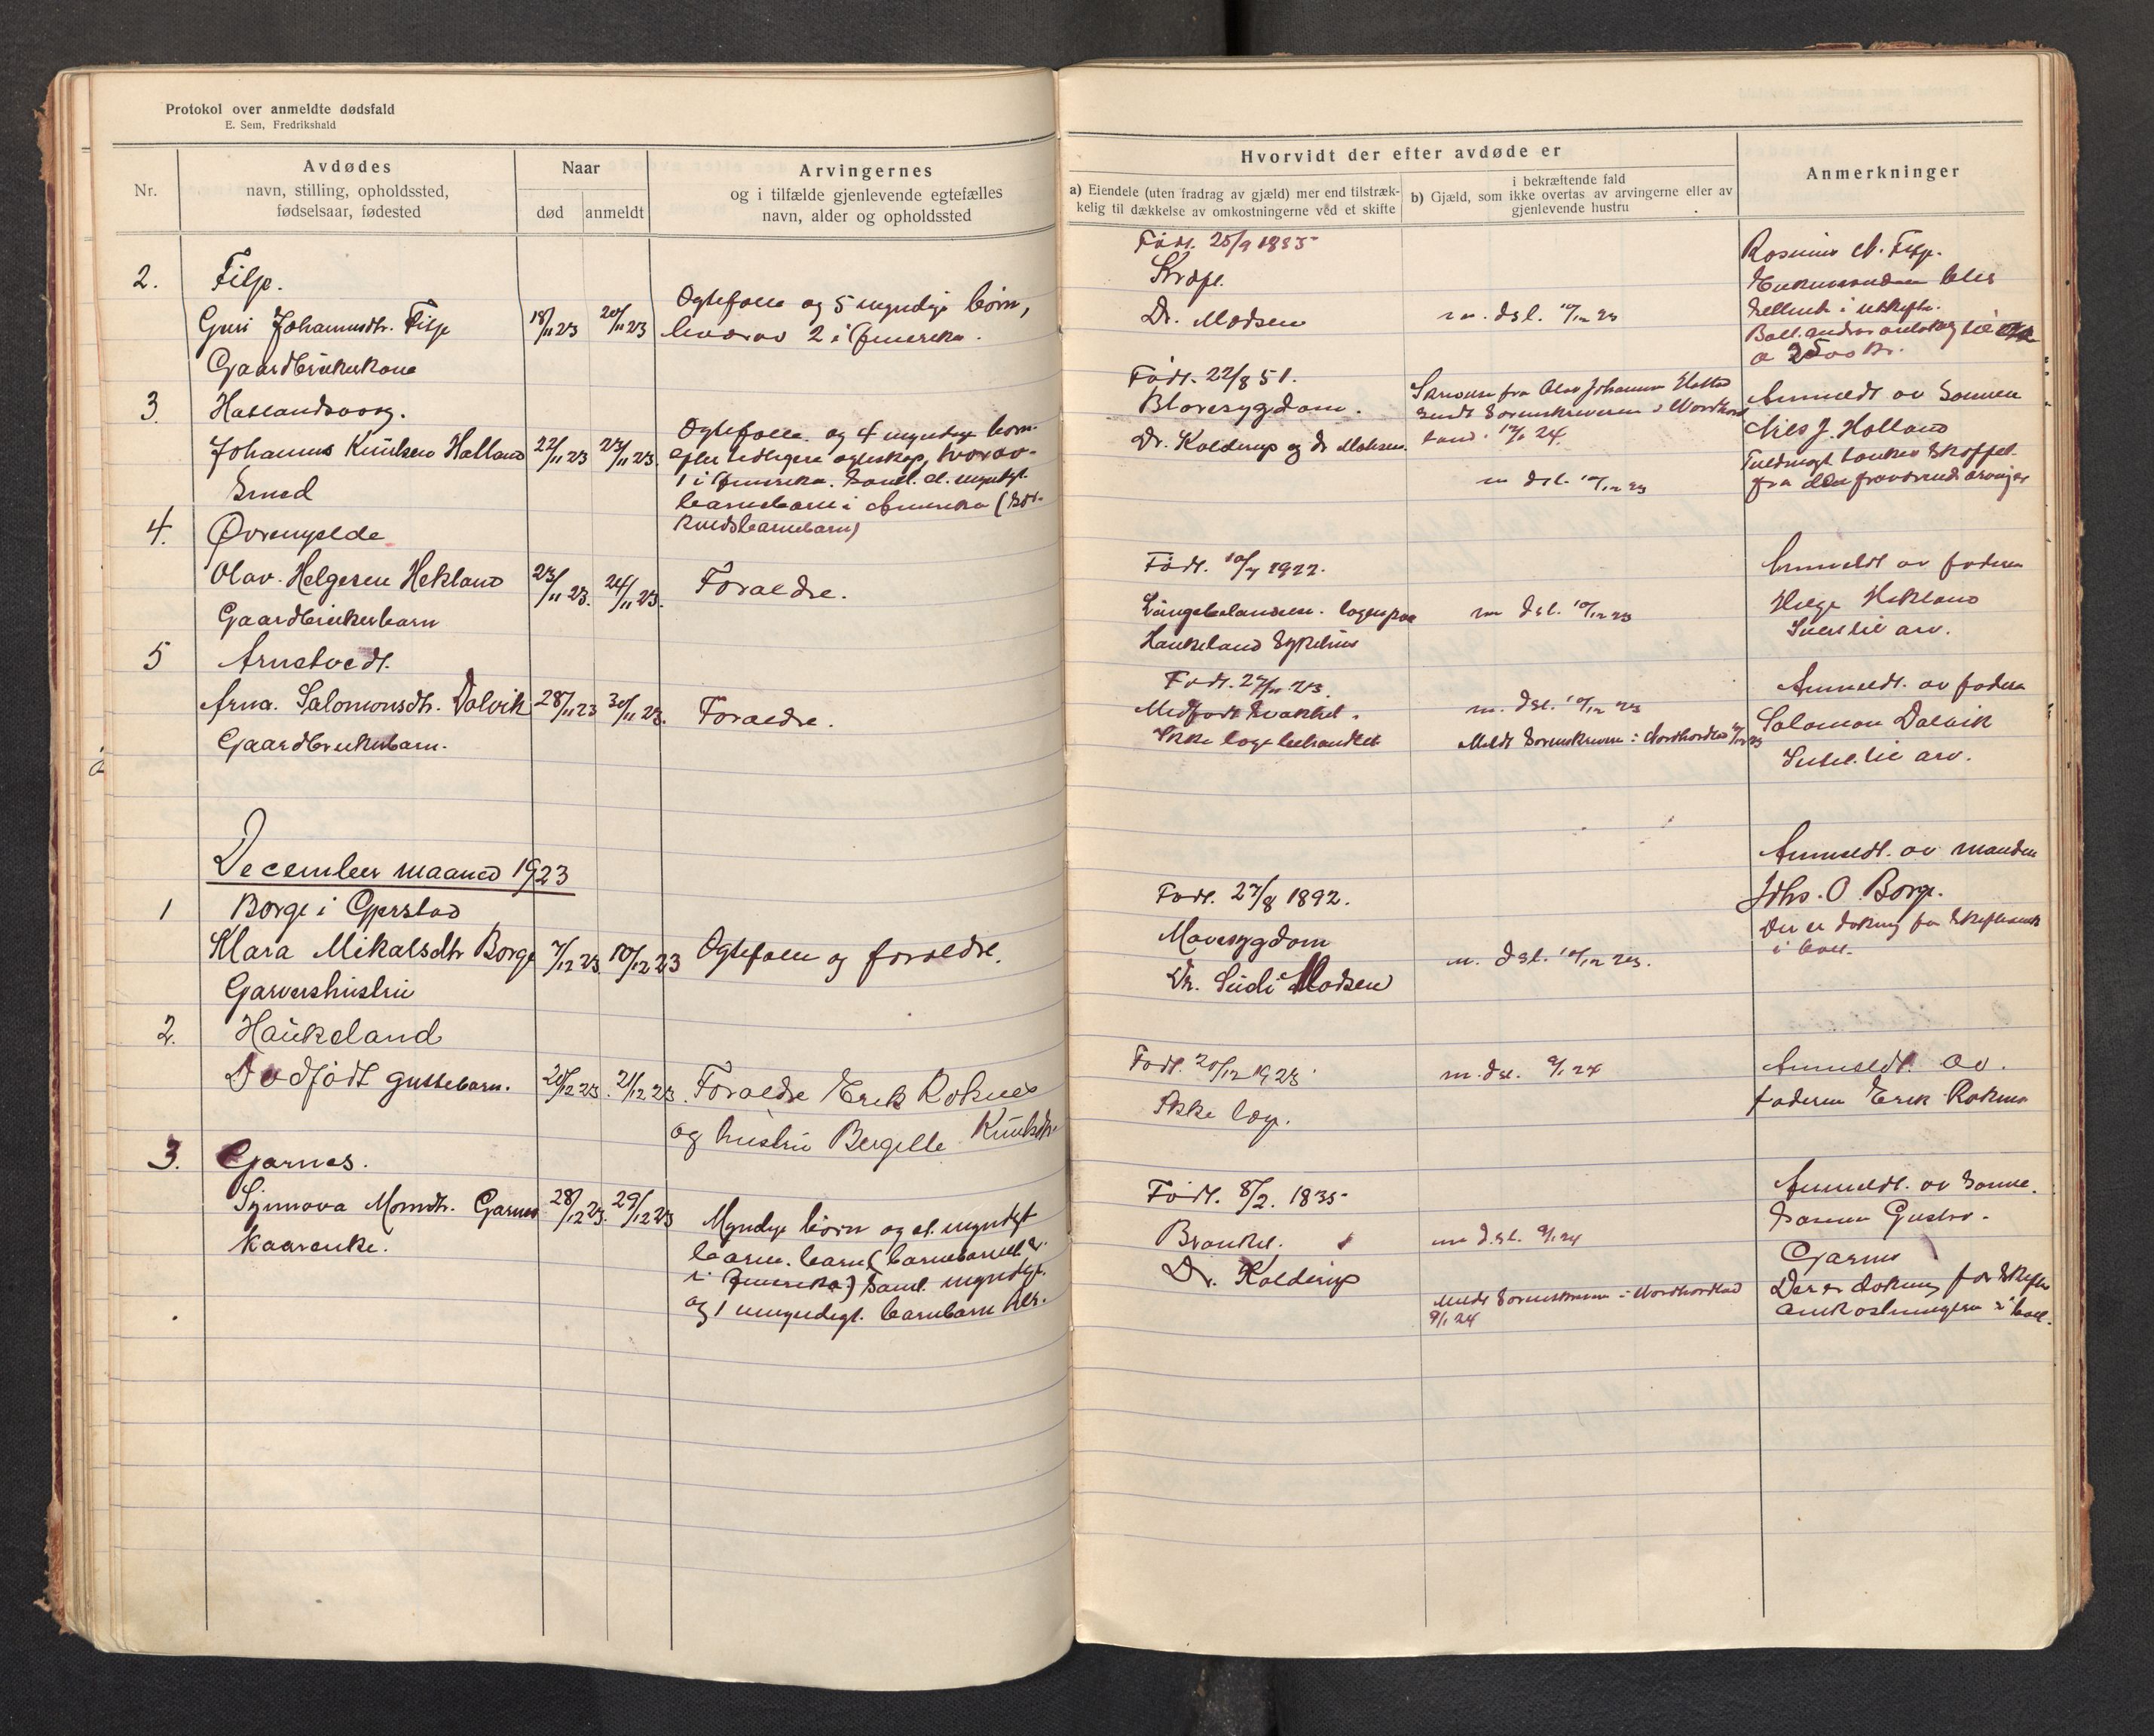 Protokol over anmeldte dødsfald
E. Sem, Fredrikshald
Nr.
Avdødes
navn, stilling, opholdssted,
fødselsaar, fødested
Naar
død
anmeldt
Arvingernes
og i tilfælde gjenlevende egtefælles
navn, alder og opholdssted
2.
Filje.
Guri Johannesdtr. Filje
Gaardbrukerkone
18/11 23
20/11 23
og 5 myndige børn,
hvorav 2 i Amerika.
3
Johannes Knutsen Halland
Smed
22/11 23
23/11 23
og 4 myndige børn
efter tidligere egteskap, hvorav
1 i Amerika. Saml. et myndigt
barnebarn i Amerika
4.
Olav Helgesen Hekland
Gaardbrukerbarn
23/11 23.
24/11 23.
Foraeldre.
5
Arnetvedt.
Arna Salomonsdtr. Dalvik
Gaardbrukerbarn.
28/11 23
30/11 23.
Foraeldre.
December maaned 1923
1
Borge i Gjerstad
Klara Mikalsdtr Borge
Garvershustru
7/12 23.
10/12 23
og foreldre.
2.
Haukeland
Dødfødt guttebarn.
20/12 23.
21/12 23.
Foraeldre Erik Roknes
og hustru Bergitte Knutsdtr.
3.
Garnes.
Synnova Monsdtr. Garnes
Kaarenke.
28/12 23.
29/12 23
Myndige børn og et myndigt
barne-barn (barnebarnet er
i Amerika) saml. myndige
og 1 umyndigt barnebarn her.
Hvorvidt der efter avdøde er
a) Eiendele (uten fradrag av gjæld) mer end tilstræk-
kelig til dækkelse av omkostningerne ved et skifte
i bekræftende fald
b) Gjæld, som ikke overtas av arvingerne eller av
gjenlevende hustru
Anmerkninger
Født. 25/9 1835
Kræft.
Dr. Madsen
m. dsl. 10/12 23
Rasmus N. Filje.
a 2500 kr.
Født. 22/8 51.
Blæresygdom.
Dr. Kolderup og dr Madsen.
Skrivelse fra Olav Johannes
sendt Sorenskriveren i Nordhord
land.
m dsl. 10/12 23
Anmeldt av Sønnen
Nils J. Halland
fra den fraværende arvinger
Født. 10/4 1922.
Lungebetændelse.
Haukeland Sykehus
m dsl. 10/12 23
Anmeldt av faderen
Helge Hekland
Intet til arv.
Født. 27/11 23.
Medfødt svakhet.
Ikke lægebehandlet
m. dsl. 10/12 23
Meldt Sorenskriveren i Nordhordland
Anmeldt. av faderen
Salomon Dalvik
Intet til arv.
Født. 27/8 1892.
Mavesygdom
Dr. Madsen
m. dsl. 10/12 23.
Anmeldt. av manden
Johs. O. Borge.
Der er dækning for
i boet.
Født. 20/12 1923.
Ikke læge.
m. dsl. 9/1 24
Anmeldt. av.
faderen Erik Roknes
Født. 8/2. 1835
Bronkit.
Dr. Kolderup
m dsl. 9/1 24
Meldt Sorenskriveren i Nordhordland
9/1 24
Anmeldt. av Sønne.
sønnen Gustav.
Garnes
Der er dækning for skifte
omkostningerne i boet.